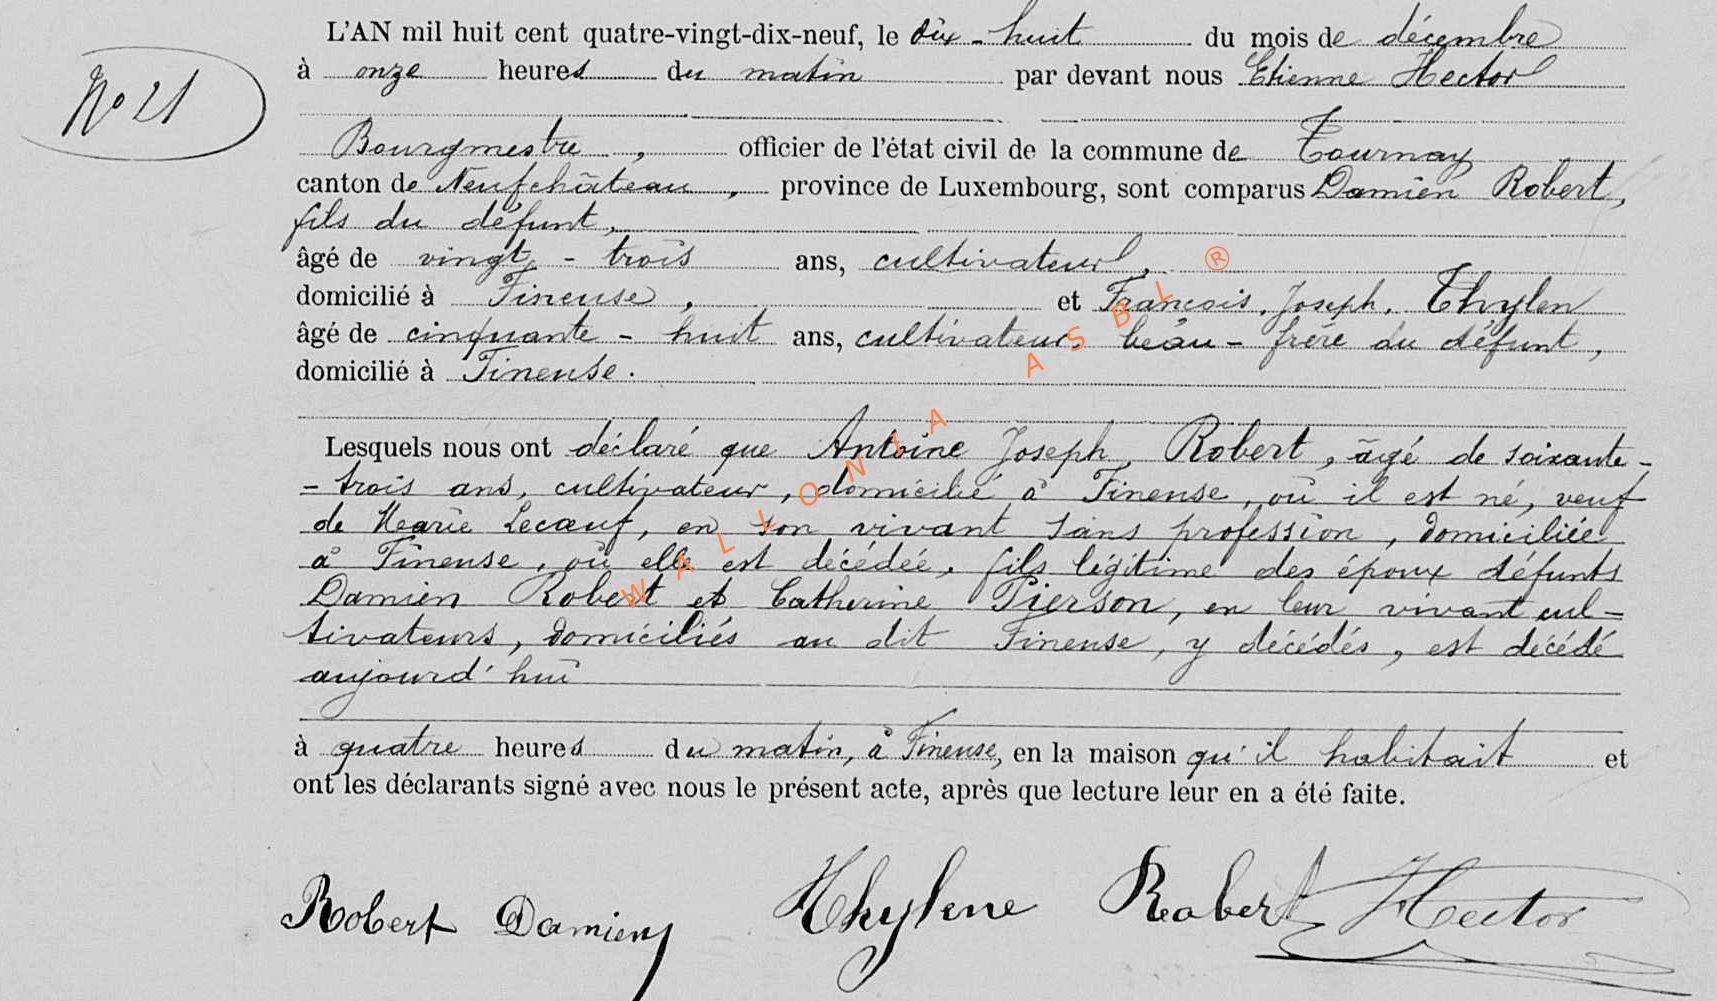 L'AN mil huit cent quatre-vingt-dix-neuf, le dix-huit du mois de décembre
à onze heures du matin par devant nous Etienne Hector
N° 21
Bourgmestre, officier de l'état civil de la commune de Tournay
canton de Neufchâteau, province de Luxembourg, sont comparus Damien Robert,
fils du défunt,
âgé de vingt-trois ans, cultivateur,
domicilié à Tineuse, et François, Joseph, Thylen
âgé de cinquante-huit ans, cultivateur, beau-frère du défunt,
domicilié à Tineuse.
Lesquels nous ont déclaré que Antoine Joseph Robert, âgé de soixante-
-trois ans, cultivateur, domicilié à Tineuse, où il est né, veuf
de Marie Lecœuf, en son vivant sans profession, domiciliée
à Tineuse, où elle est décédée, fils légitime des époux défunts
Damien Robert et Catherine Pierson, en leur vivant cul=
tivateurs, domiciliés au dit Tineuse, y décédés, est décédé
aujourd'hui
à quatre heures du matin, à Tineuse, en la maison qu'il habitait et
ont les déclarants signé avec nous le présent acte, après que lecture leur en a été faite.
Robert Damien Thylene Robert Hector
WALLONIA ASBL ®